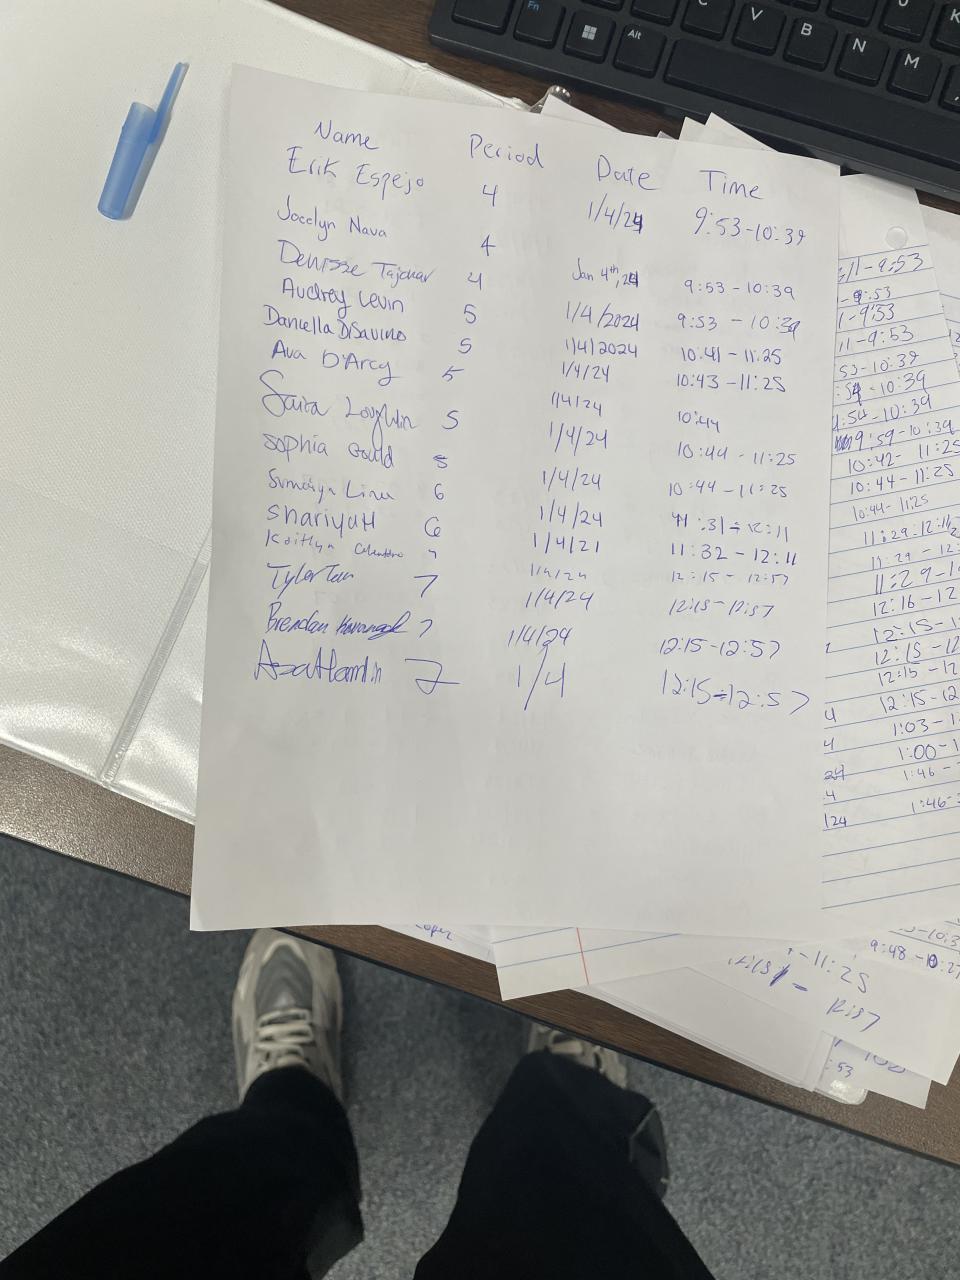 Name Period Date Time
Erik Espejo 4 1/4/24 9:53-10:39
Jocelyn Nava 4 Jan 4th, 24 9:53 - 10:39
Denisse 4 1/4/2024 9:53 - 10:39
Audrey Levin 5 1/4/2024 10:41 - 11:25
Daniella DiSavino 5 1/4/24 10:43 - 11:25
Ava D'Arcy 5 1/4/24 10:44
Saira Loughlin 5 1/4/24 10:44 - 11:25
Sophia Gould 5 1/4/24 10:44 - 11:25
Sumaiya 6 1/4/24 :31 - 12:11
Shariyah 6 1/4/21 11:32 - 12:11
Kaitlyn 7 1/4/24 12:15 - 12:57
Tyler 7 1/4/24 12:15 - 12:57
Brendan Kavanagh 7 1/4/24 12:15-12:57
7 1/4 12:15-12:57
:11-9:53
-9:53
1-9:53
11-9:53
53-10:39
-10:39
1:54-10:39
9:59-10:39
10:42- 11:25
10:44-11:25
10:44- 11:25
11:29-12:11
11:29 - 12:
11:29-1
12:16-12
12:15-1
12:15-12
12:15-12
4 12:15-12
4 1:03-1
24 1:00-1
4 1:46-
124 1:46-
9:48-10:27
-11:25
:53
C V B N M
Fn Alt